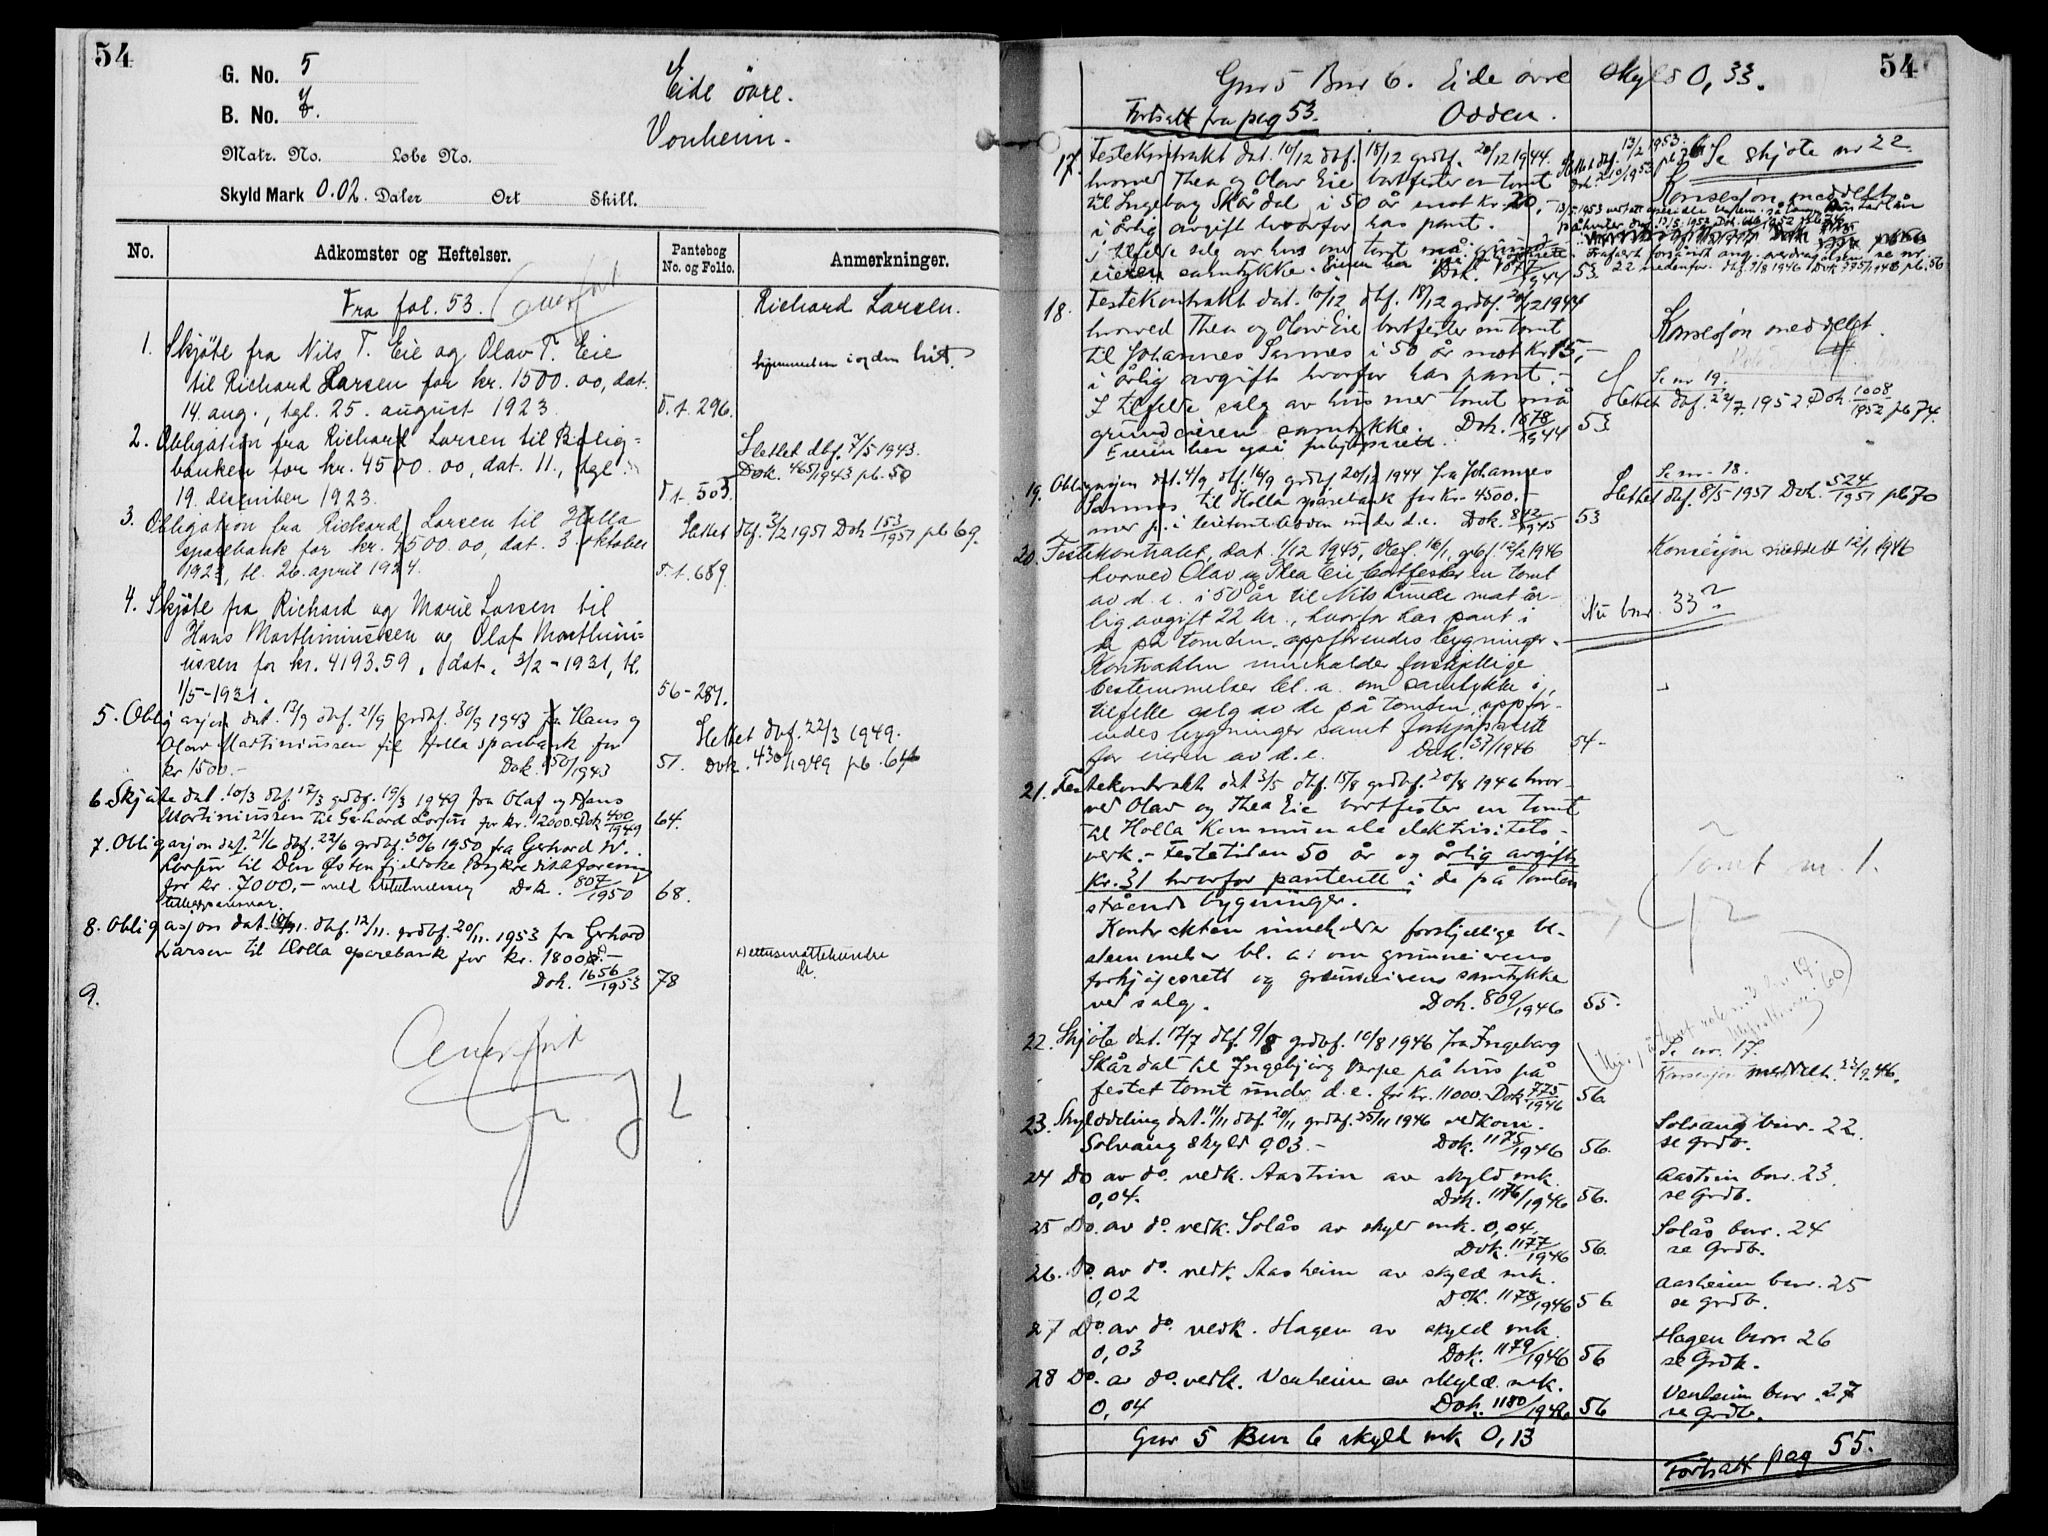 54
G. No. 5
B. No. 7.
Matr. No. Løbe No.
Skyld Mark 0.02. Daler Ort Skill.
Eide övre.
Vonheim.
No. Adkomster og Heftelser. Pantebog No. og Folio. Anmerkninger.
Fra fol. 53. Overført
Richard Larsen.
1. Skjöte fra Nils T. Eie og Olav T. Eie
til Richard Larsen for kr. 1500.00, dat.
14. aug., tgl. 25. august 1923. T.1. 296.
hjemmelen i orden hit.
2. Obligation fra Richard Larsen til Bolig=
banken for kr. 4500.00, dat. 11., tgl.
19. desember 1923. T.1. 503.
Slettet dbf. 7/5 1943.
Dok. 465/1943 pb. 50
3. Obligation fra Richard Larsen til Holla
sparebank for kr. 4500.00, dat. 3. oktober
1923, tl. 26. april 1924. T.1. 689.
Slettet dbf. 3/2 1951 Dok 153/1951 pb 69.
4. Skjöte fra Richard og Marie Larsen til
Hans Marthiniussen og Olaf Marthini=
ussen for kr. 4193.59, dat. 3/2-1931, tl.
1/5-1931. 56-287.
5. Obligasjon dat. 13/9 dbf. 21/9 grdbf. 30/9 1943 fra Hans og
Olav Martiniussen til Holla sparebank for
kr 1500.- Dok. 950/1943 51.
Slettet dbf. 22/3 1949.
Dok. 430/1949 pb. 64
6. Skjöte dat. 10/3 dbf. 17/3 grdbf. 19/3 1949 fra Olaf og Hans
Martiniussen til Gerhard Larsen for kr. 12000.- Dok 400/1949 64.
7. Obligasjon dat. 21/6 dbf. 22/6 grdbf. 30/6 1950 fra Gerhard W.
Larsen til Den Østenfjeldske Bykreditforening
for kr. 7000,- med Dok. 807/1950 68.
8. Obligasjon dat. dbf. 12/11. grdbf. 20/11. 1953 fra Gerhard
Larsen til Holla sparebank for kr. 1800.-
Dok. 1656/1953 78
9.
Overført
54
Gnr 5 Bnr 6. Eide øvre Skyld 0,33.
Fortsatt fra pag 53. Odden.
17. Festekontrakt dat. 10/12 dbf. 18/12 grdbf. 20/12 1944.
hvorved Thea og Olav Eie bortfester en tomt
til Ingeborg Skårdal i 50 år imot kr. 20,-
i årlig avgift hvorfor has pant.
I tilfelde salg av hus med tomt må grund-
eieren samtykke. Dok. 1677/1944 53.
Se skjøte nr 22.
Konsesjon meddelt.
18. Festekontrakt dat. 10/12 dbf. 18/12 grdbf. 20/12 1944
hvorved Thea og Olav Eie bortfester en tomt
til Johannes Sannes i 50 år mot kr 15,-
i årlig avgift hvorfor has pant.-
I tilfelde salg av hus med tomt må
grundeieren samtykke. Dok. 1678/1944 53
Eieren har også forkjøpsrett.
Konsesjon meddelt.
Se nr 19.
Slettet dbf. 22/7. 1952 Dok. 1008/1952 pb 74.
19. Obligasjon dat. 4/9 dbf. 16/9 grdbf. 20/12 1944 fra Johannes
Sannes til Holla sparebank for kr. 4500.-
under d.e. Dok. 842/1945 53
Se nr. 18.
Slettet dbf. 8/5-1951 Dok. 524/1951 pb 70
20. Festekontrakt, dat. 1/12 1945, dbf. 16/1, grbf. 12/2 1946
hvorved Olav og Thea Eie bortfester en tomt
av d.e. i 50 år til Nils Lunde mot år-
lig avgift 22 kr., hvorfor has pant i
de på tomten oppförendes bygninger.
Kontrakten inneholder forskjellige
bestemmelser bl.a. om samtykke i
tilfelle salg av de på tomten oppfør-
endes bygninger samt forkjøpsrett
for eieren av d.e. Dok. 37/1946 54-
Konsesjon meddelt 12/1 1946
Nu bnr. 33
21. Festekontrakt dat 3/5 dbf. 15/8 grdbf. 20/8 1946 hvor-
ved Olav og Thea Eie bortfester en tomt
til Holla Kommunale elektrisitets-
verk.- Festetiden 50 år og årlig avgift
kr. 31 hvorfor panterett i de på tomten
stående bygninger.
Kontrakten inneholder forskjellige be-
stemmelser bl. a. om grunneierens
forkjøpsrett og grunneierens samtykke
ved salg. Dok. 809/1946 55.
Tomt nr. 1.
22. Skjøte dat. 17/7 dbf. 9/8 grdbf. 10/8 1946 fra Ingeborg
Skårdal til Ingebjørg Borpe på hus på
festet tomt under d.e. for kr. 11000.- Dok 775/1946 56.
Se nr. 17.
Konsesjon meddelt. 23/9.46.
23. Skylddeling dat. 11/11 dbf. 20/11 grdbf. 25/11 1946 vedkom.
Solvang skyld 0,03.- Dok. 1175/1946 56.
Solvang bnr. 22.
se grdb.
24 Do av do. vedk. Aastrin av skyld mk.
0,04. Dok. 1176/1946 56.
Aastrin bnr. 23.
se Grdb.
25 Do. av do. vedk. Solås av skyld mk. 0,04.
Dok. 1177/1946 56.
Solås bnr. 24
se Grdb.
26. Do. av do. vedk. Aasheim av skyld mk.
0,02 Dok. 1178/1946 56
Aasheim bnr. 25
se grdb.
27 Do. av do. vedk. Hagen av skyld mk.
0,03 Dok. 1179/1946 56
Hagen bnr 26
se Grdb.
28 Do. av do. vedk. Vonheim av skyld mk.
0,04 Dok. 1180/1946 56
Vonheim bnr. 27
se Grdb.
Gnr 5 Bnr 6 skyld mk 0,13
Fortsatt pag 55.